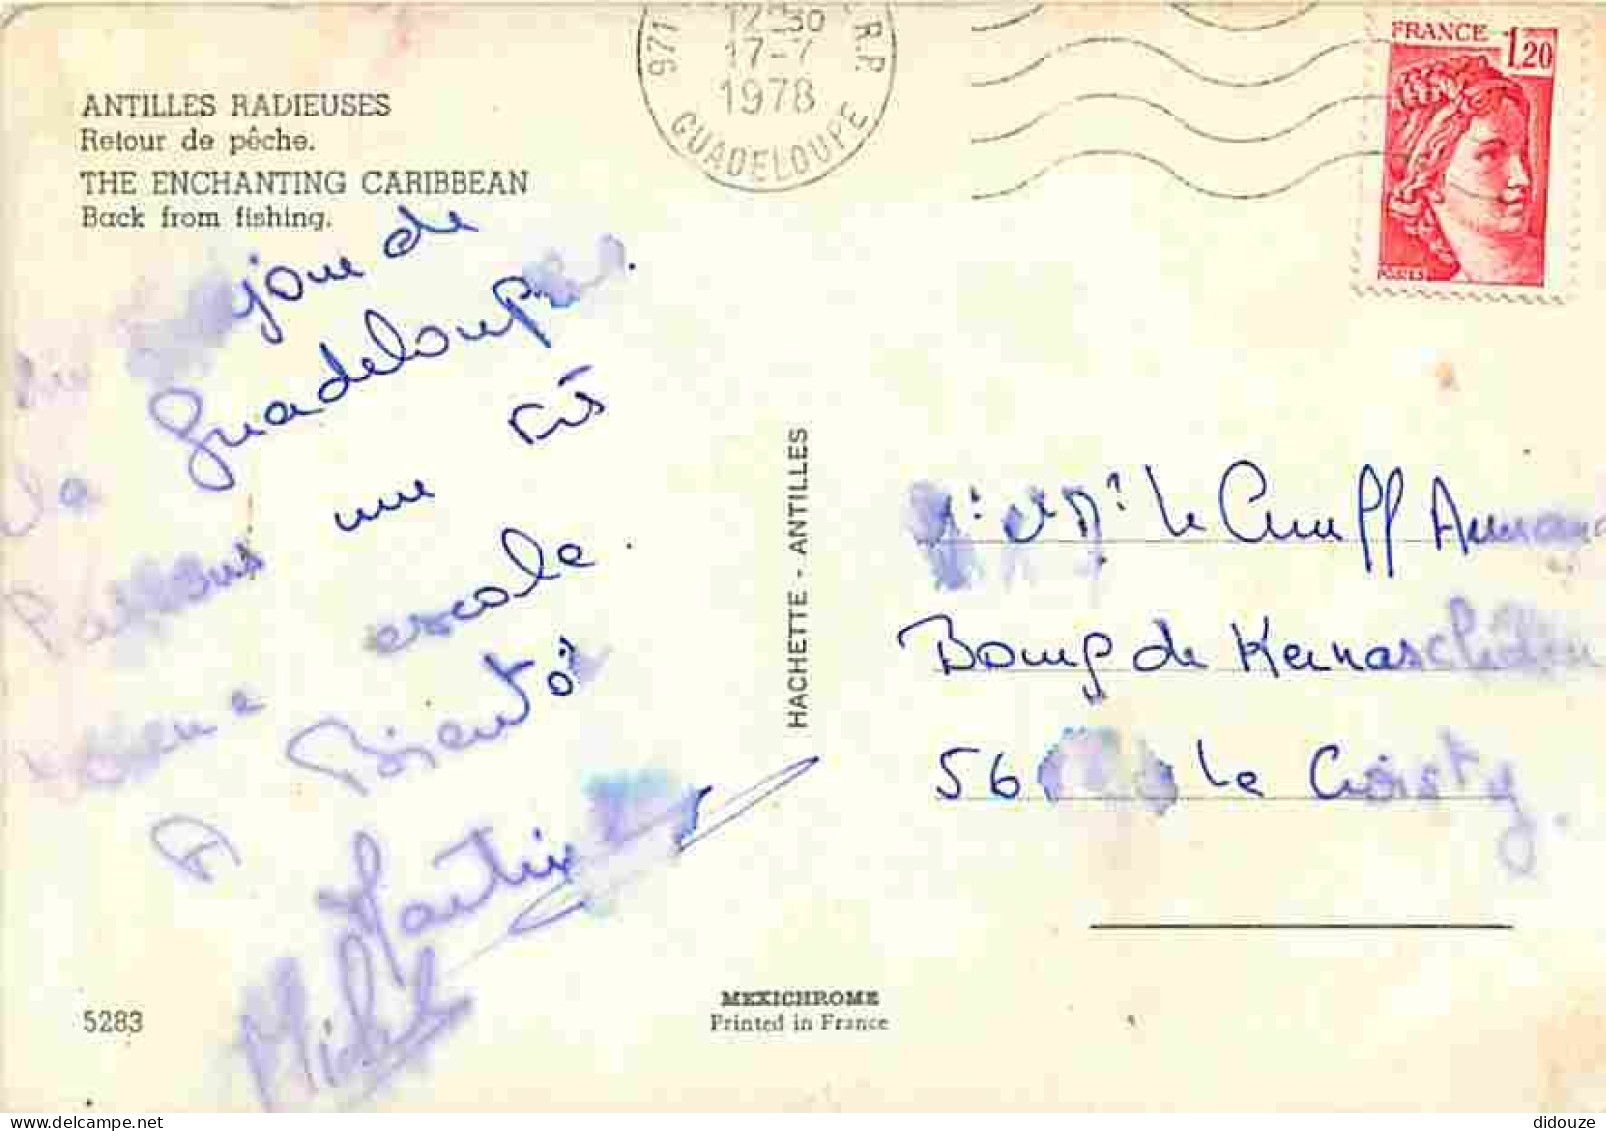 ANTILLES RADIEUSES
Retour de pêche.
THE ENCHANTING CARIBBEAN
Back from fishing.
971 12-30 R.P.
17-7
1978
GUADELOUPE
FRANCE 1,20
jour de
Guadeloupe.
la
Passons une très
escale.
A Bientôt
Martine
Michel
HACHETTE - ANTILLES
Le Cunff Armand
Bourg de
56 Le Croisty.
5283
MEXICHROME
Printed in France
delcampe.net
didouze